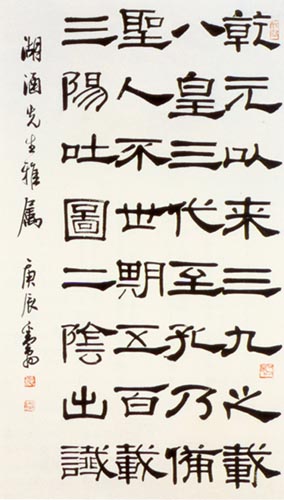 乾元以来三九之載
八皇三代至孔乃備
聖人不世期五百載
三陽吐圖二陰出讖
湖先生雅屬 庚辰